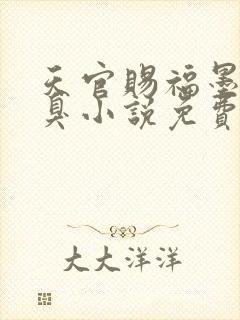 天官赐福墨
臭小说免费
大大洋洋